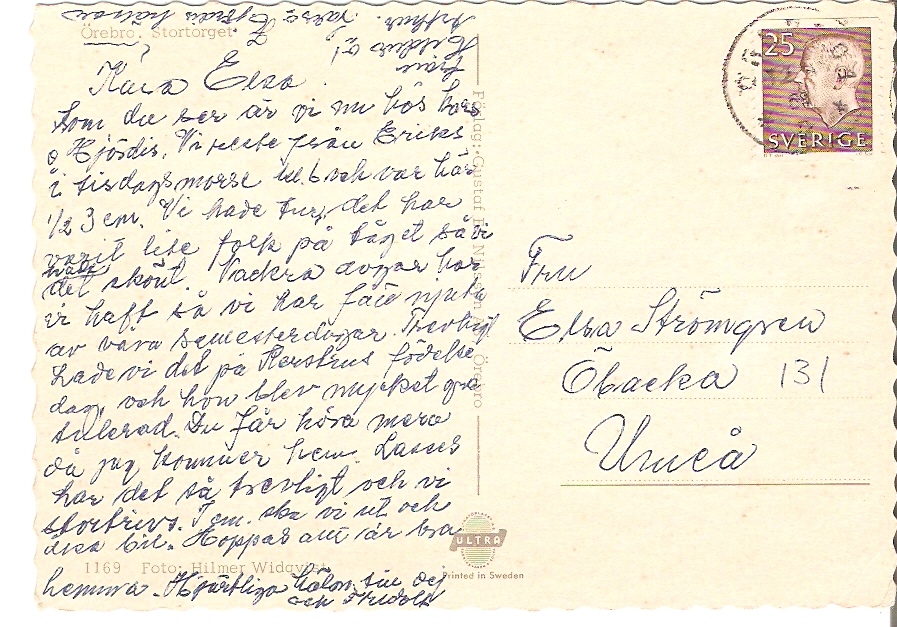 Örebro. Stortorget
Kära Elsa.
Som du ser är vi nu hos
o Hjördis. Vi reste från Eriks
i tisdagsmorse kl. 6 och var här
1/2 3 em. Vi hade tur, det har
varit lite folk på tåget så vi
hade
det skönt. Vackra dagar har
vi haft så vi har
av våra semesterdagar. Trevligt
hade vi det på Kerstins födelse
dag, och hon blev mycket gra
tulerad. Du får höra mera
då jag kommer hem. Lasses
har det så trevligt och vi
stortrivs. I em. ska vi ut och
åka bil. Hoppas att är bra
hemma. Hjärtliga till dej
och Fridolf
Arthur. Lasse Hjördis
Hildur o
1169 Foto: Hilmer Widqvist
Förlag: Gustaf Örebro
ULTRA
Printed in Sweden
25
SVERIGE
Fru
Elsa Strömgren
Öbacka 131
Umeå